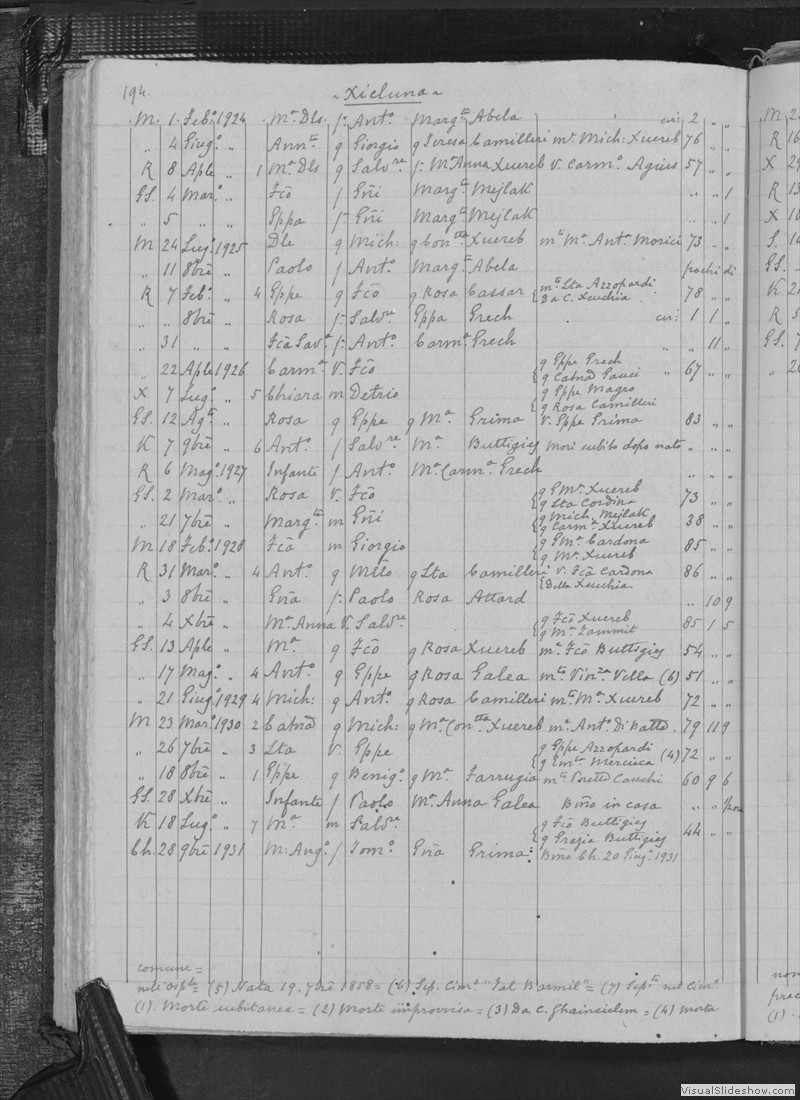 194. ~ Xicluna ~
M. 1. Feb.o 1924 Ma Dls f. Anto. Margta Abela circ: 2 " "
" 4 Giug.o " Annta g Giorgio g Teresa Camilleri m. Mich: Xuereb 76 " "
R 8 Aple " 1 Ma Dls g Salvre f. Ma Anna Xuereb V. Carmo Agius 57 " "
GS. 4 Mar.o " Fcõ f Gñi Margta Mejlak " " 1
" 5 " " Eppa f. Gñi Margta Mejlak " " 1
M 24 Lug.o 1925 Dle g Mich: g Contta Xuereb ma Ma Anta Morici 73 " "
" 11 8bre " Paolo f Anto. Margta Abela pochi di
R 7 Feb.o " 4 Eppe g Fcõ g Rosa Cassar { mta Lta Azzopardi Da C. Xeuchia. 78 " "
" " 8bre " Rosa f. Salvre Eppa Grech circ: 1 1 "
" 31 " " Fcã Sava f. Anto. Carma Grech " 11 "
" 22 Aple 1926 Carma V. Fcõ { g Eppe Grech g Catnã Gauci " 67 " "
X 7 Lug.o " 5 Chiara m Detrio { g Eppe Magro g Rosa Camilleri
GS. 12 Agto " Rosa g Eppe g Ma Grima V. Eppe Grima 83 " "
K 7 9bre " 6 Anto. f Salvre Ma Buttigieg Mori subito dopo nato " " "
R 6 Mag.o 1927 Infante f Anto. Ma Carma Grech " " "
GS. 2 Mar.o " Rosa V. Fcõ { g GMa Xuereb g Lta Cordina 73 " "
" 21 7bre " Margta m Gñi { g Mich. Mejlak g Carma Xuereb 38 " "
M 18 Feb.o 1928 Fcã m Giorgio { g GMa Cardona g Ma Xuereb 85 " "
R 31 Mar.o " 4 Anto. g Mllo g Lta Camilleri { V. Fcã Cardona Della Xeuchia. 86 " "
" 3 8bre " Gña f. Paolo Rosa Attard " 10 9
" 4 Xbre " Ma Anna V. Salvre { g Fcõ Xuereb g Ma Zammit 85 1 5
GS. 13 Aple " Ma g Fcõ g Rosa Xuereb m. Fcõ Buttigieg 54 " "
" 17 Mag.o " 4 Anto. g Eppe g Rosa Galea mta Vinza Vella (6) 51 " "
" 21 Giug.o 1929 4 Mich: g Anto. g Rosa Camilleri mta Ma Xuereb 72 " "
M 23 Mar.o 1930 2 Catnã g Mich: g Ma Contta Xuereb m. Anto. Di Natto. 79 11 9
" 26 7bre " 3 Lta V. Eppe { g Eppe Azzopardi g Gmta Mercieca (4) 72 " "
" 18 8bre " 1 Eppe g Benig.o g Ma Farrugia mta Loretta Cauchi 60 9 6
GS. 28 Xbre " Infante f Paolo Ma Anna Galea Bñõ in casa " "
K 18 Lug.o " 7 Ma m Salvre { g Fcõ Buttigieg g Grazia Buttigieg 44 " "
Ch. 28 9bre 1931 M: Ang.o f Tom.o Gña Grima: Bñõ Ch. 20 Giug.o 1931
comune =
nell'osple = (5) Nata 19. 7bre 1858 = (6) Sep. Cimo "Tal Barmil" = (7) Septa nel Cimo
(1). Morte subitanea = (2) Morte improvvisa = (3) Da C. Ghainsielem = (4) morta
VisualSlideshow.com